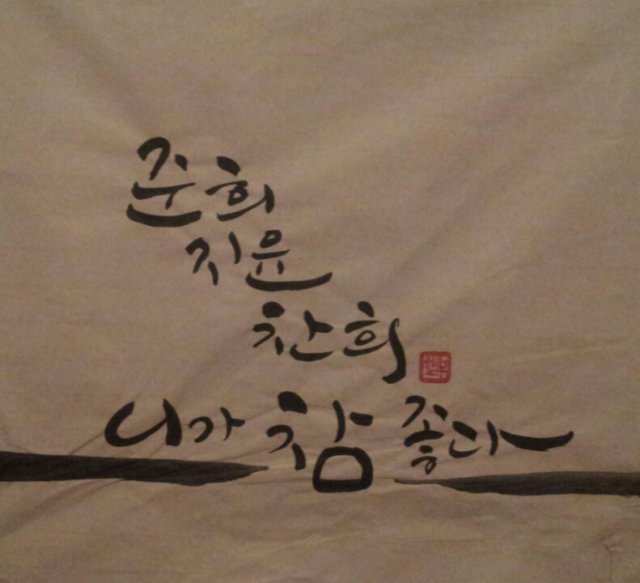 준희
지윤
찬희
니가 참 좋다